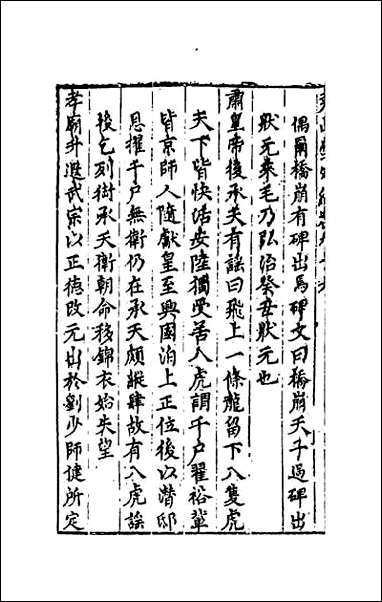 偶爾橋崩有碑出焉碑文曰橋崩天子過碑出
狀元來毛乃弘治癸丑狀元也
肅皇帝後承天有謠曰飛上一條龍留下八隻虎
天下皆快活安陸獨受苦八虎謂千戶翟裕輩
皆京師人隨獻皇至興國洎上正位後以潛邸
恩擢千戶無衛仍在承天頗縱肆故有八虎謠
後乞列樹承天衛朝命移錦衣始失望
孝廟升遐武宗以正德改元出於劉少師健所定